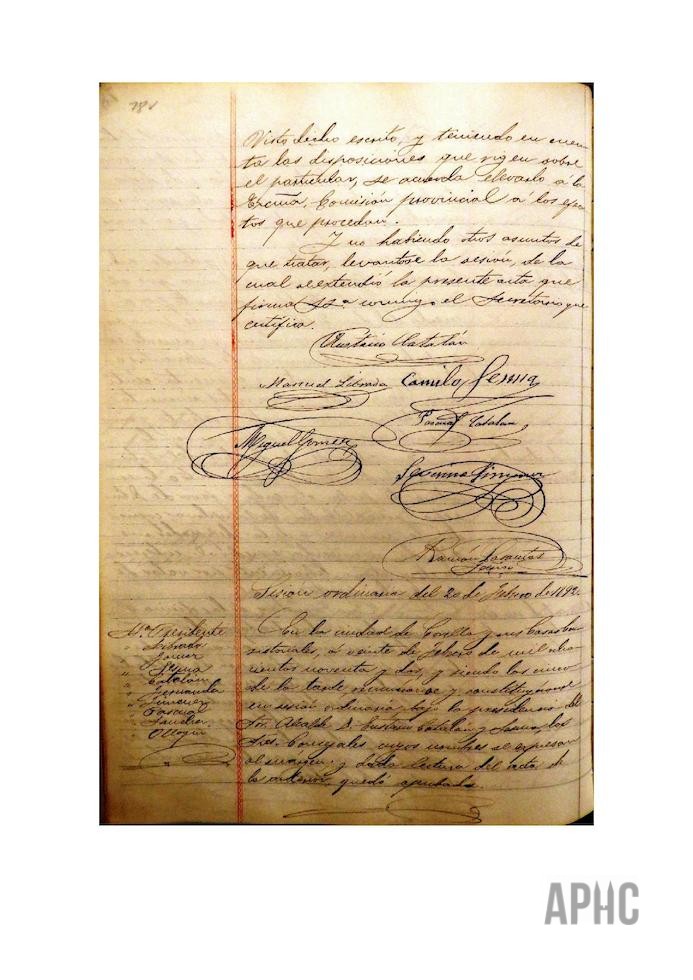 Visto dicho escrito, y teniendo en cuen-
ta las disposiciones que rigen sobre
el particular, se acuerda llevarlo á la
Excma. Comisión provincial á los efec-
tos que procedan.
Y no habiendo otros asuntos de
que tratar, levantose la sesión, de la
cual se extendió la presente acta que
firma SSª conmigo el Secretario que
certifico.
Eustasio Catalán
Manuel Librada Camilo
Miguel Gomez Pascual Catalan
Ramón
Sesion ordinaria del 20 de Febrero de 1892.
Sr. Presidente
" Catalán
" Fernanda
" Jimenez
" Pascual
" Sanchez
En la ciudad de Corella y sus Casas Con-
sistoriales, á veinte de Febrero de mil ocho-
cientos noventa y dos, y siendo las cinco
de la tarde, reunieronse y constituyeronse
en sesión ordinaria bajo la presidencia del
Sr. Alcalde D. Eustasio Catalán y los
Sres. Concejales cuyos nombres se expresan
al margen; y dada lectura del acta de
la anterior, quedó aprobada.
APHC